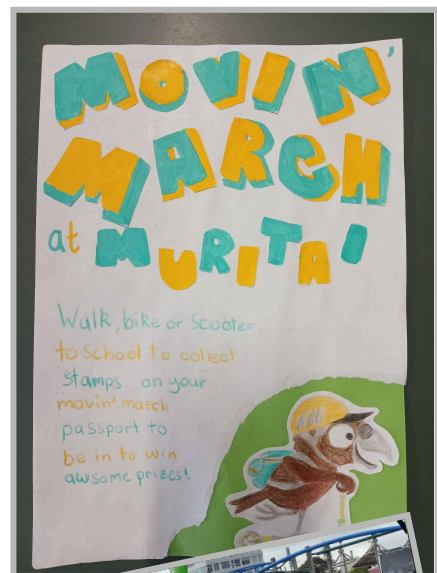 MOVIN'
MARCH
at MURITAI
Walk, bike or Scooter
to School to collect
stamps on your
movin' march
passport to
be in to win
awsome prizes!